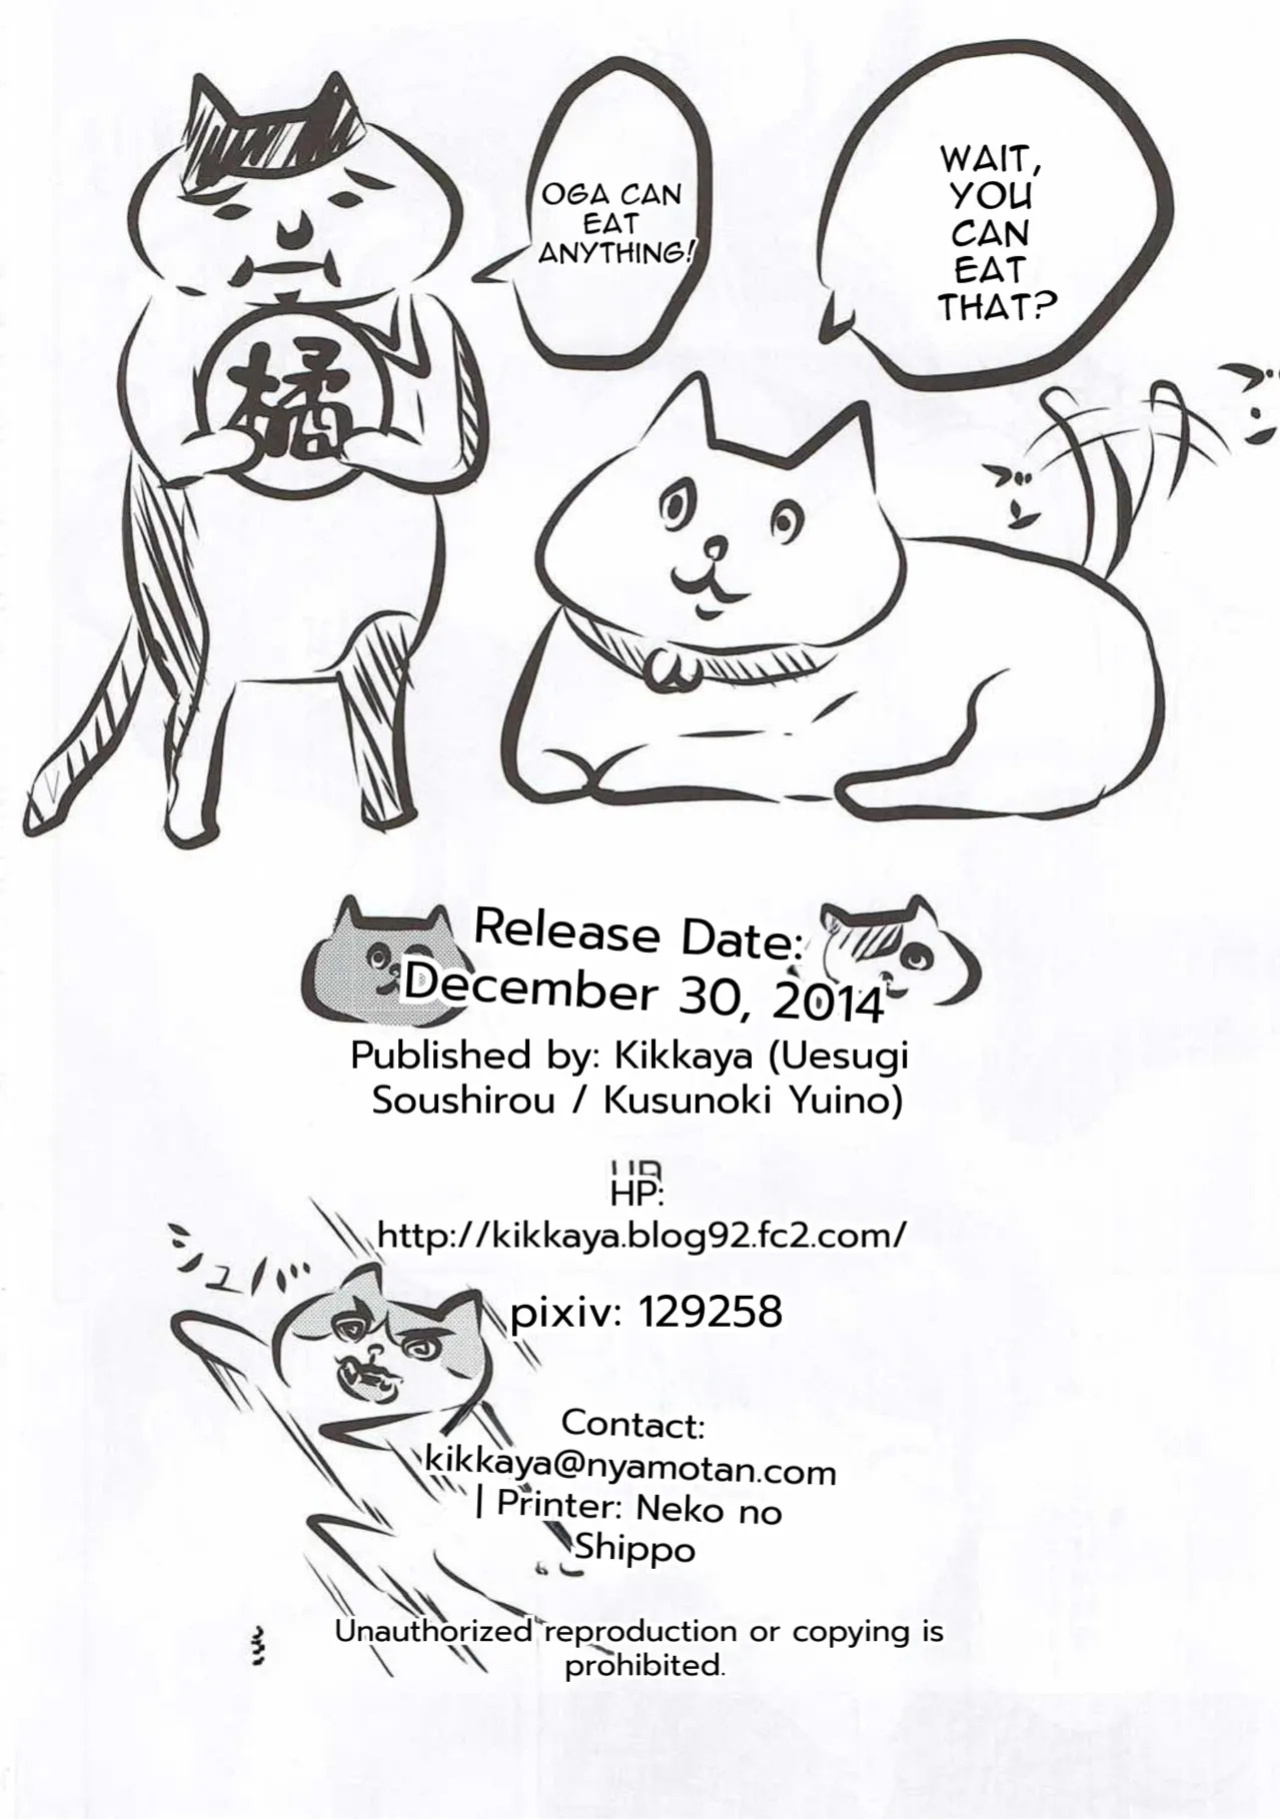 WAIT,
YOU
CAN
EAT
THAT?
OGA CAN
EAT
ANYTHING!
橘
Release Date:
December 30, 2014
Published by: Kikkaya (Uesugi
Soushirou / Kusunoki Yuino)
HP:
http://kikkaya.blog92.fc2.com/
シュバ
pixiv: 129258
Contact:
kikkaya@nyamotan.com
| Printer: Neko no
Shippo
Unauthorized reproduction or copying is
prohibited.